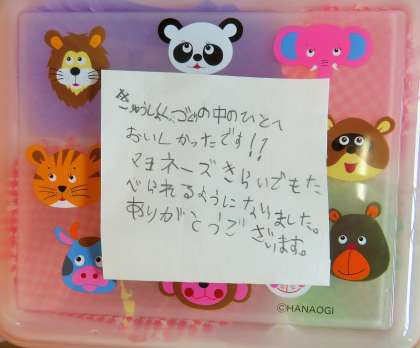 きゅうしょくべやの中のひとへ
おいしかったです!!
マヨネーズきらいでもた
べられるようになりました。
ありがとうございます。
©HANAOGI